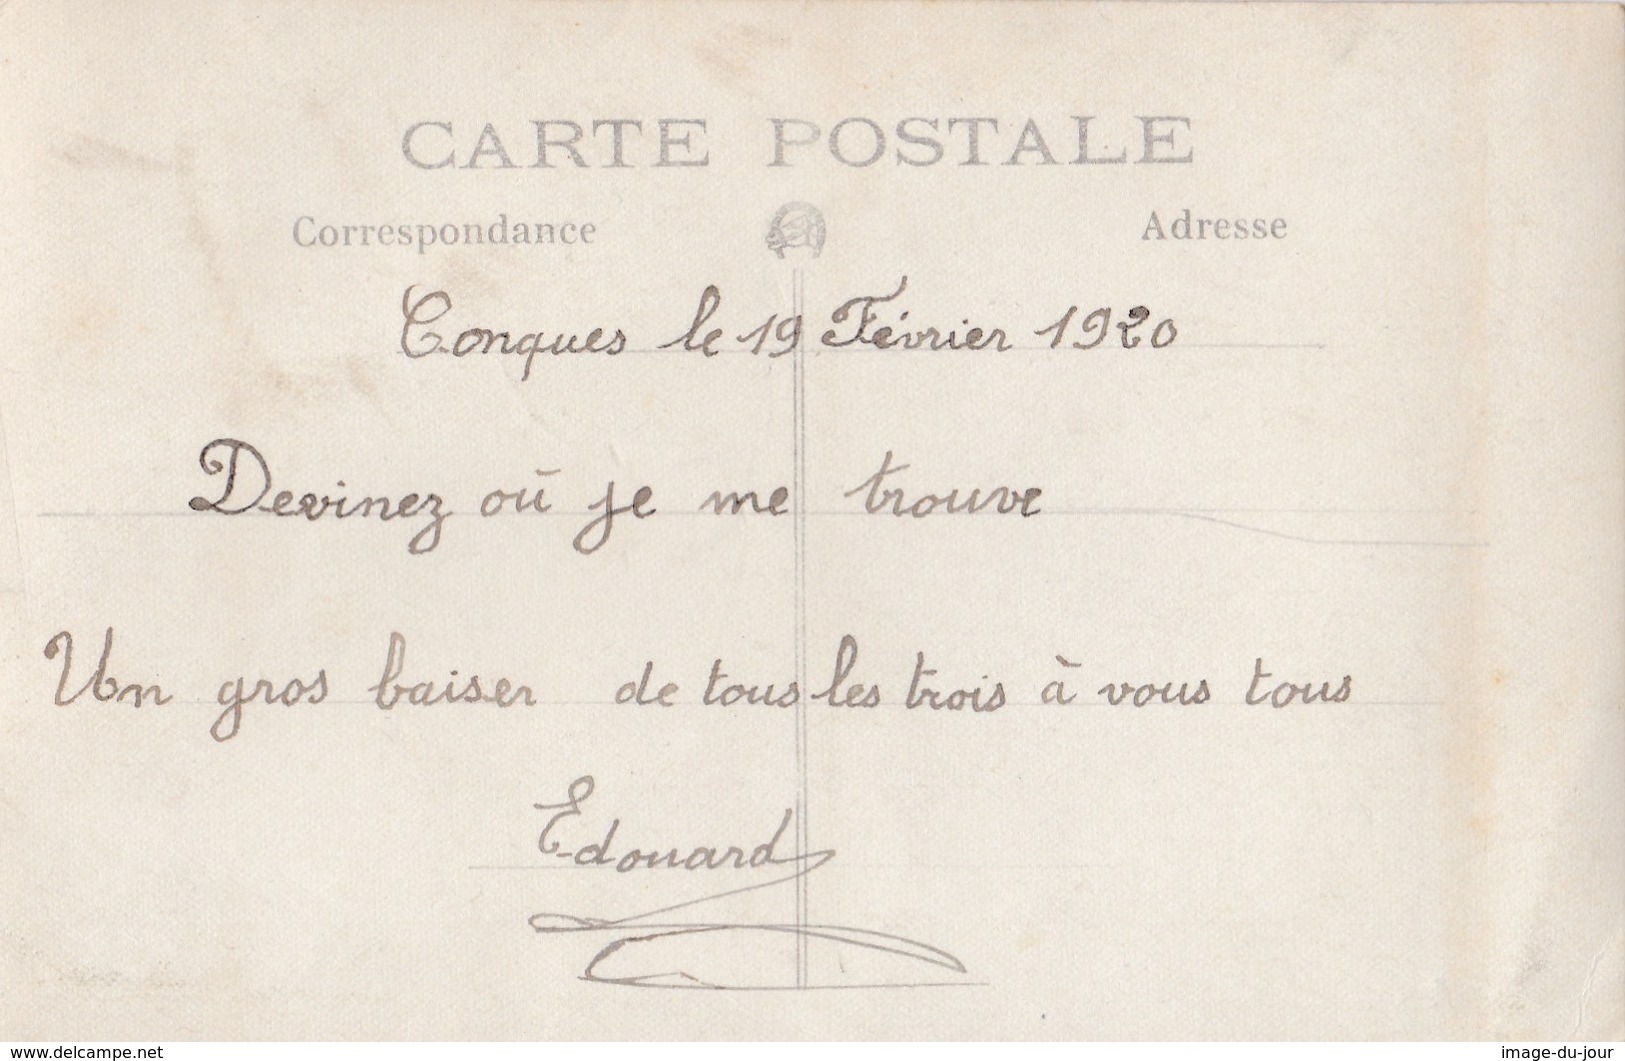 CARTE POSTALE
Correspondance Adresse
Conques le 19 Février 1920
Devinez où je me trouve
Un gros baiser de tous les trois à vous tous
Edouard
www.delcampe.net image-du-jour